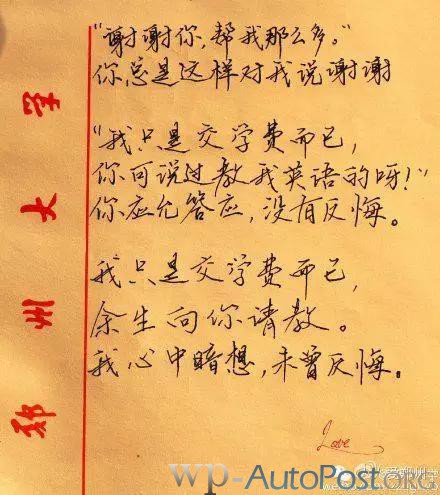 “谢谢你,帮我那么多。”
你总是这样对我说谢谢
“我只是交学费而已,
你可说过教我英语的呀!”
你应允答应,没有反悔。
我只是交学费而已,
余生向你请教。
我心中暗想,未曾反悔。
Love
郑州大学
wp-AutoPost.org